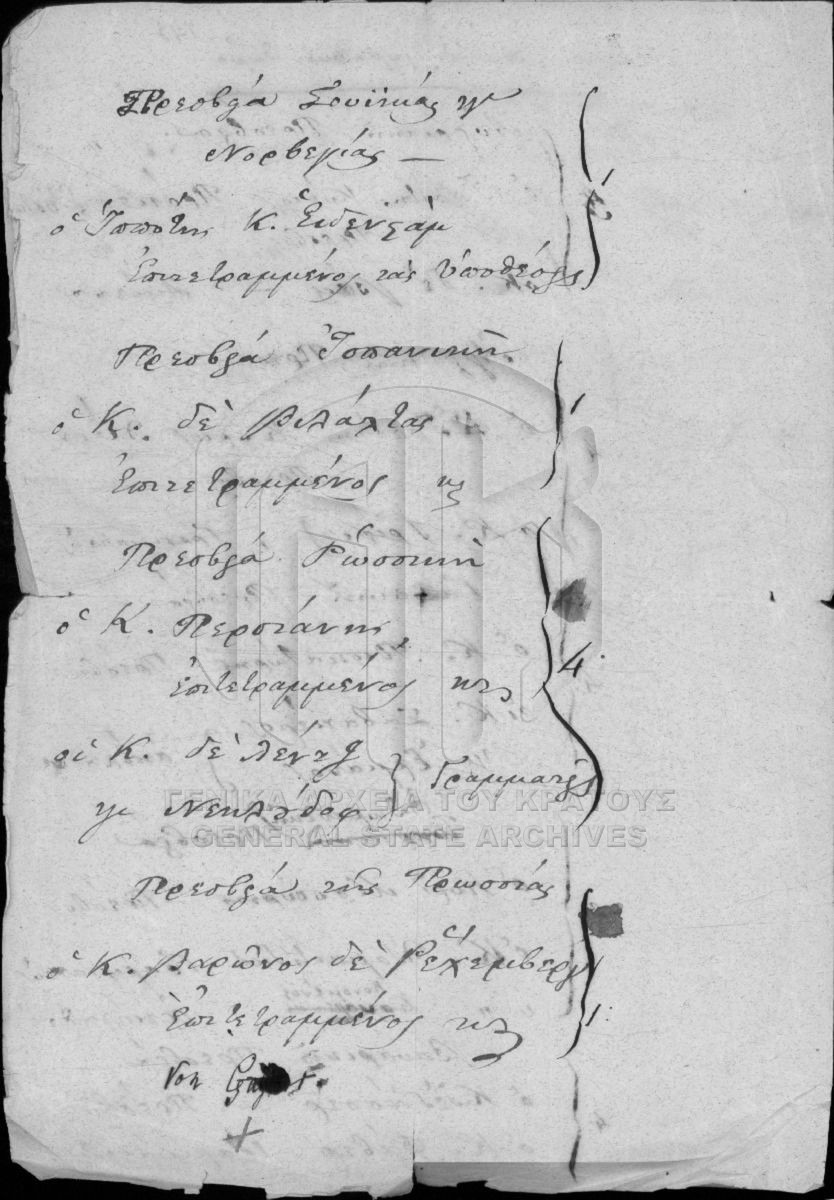 Πρεσβεία Σουϊκίας και
Νορβεγίας —
ὁ Ἱππότης Κ. Ἑϊδενςὰμ
Ἐπιτετραμμένος τὰς ὑποθέσεις
1
Πρεσβεία Ἱσπανική.
ὁ Κ. δὲ Βιλάλτας
Ἐπιτετραμμένος κλ
1
Πρεσβεία Ῥωσσική
ὁ Κ. Περσιάνης,
Ἐπιτετραμμένος κτλ
4.
οἱ Κ. δὲ Λέντζ
και Νεκλούδοφ. } Γραμματείς
Πρεσβεία τῆς Πρωσσίας
ὁ Κ. Βαρῶνος δὲ Ῥεχεμβεργ
Ἐπιτετραμμένος κτλ
1.
ΓΕΝΙΚΑ ΑΡΧΕΙΑ ΤΟΥ ΚΡΑΤΟΥΣ
GENERAL STATE ARCHIVES